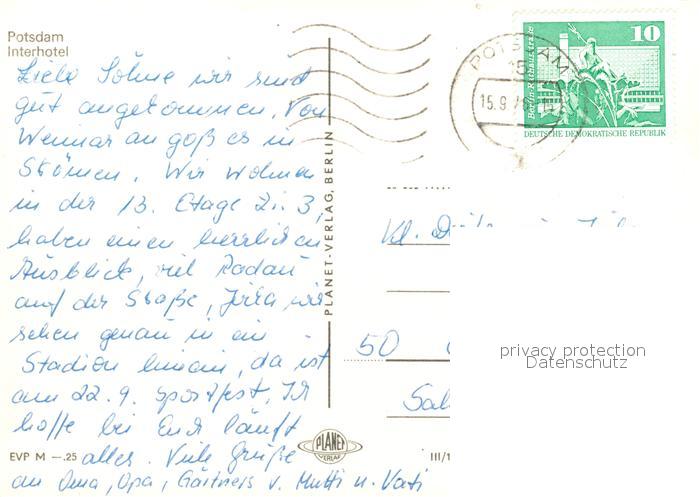 Potsdam
Interhotel
Liebe Söhne wir sind
gut angekommen. Von
Weimar an goß es in
Strömen. Wir wohnen
in der 13. Etage Zi. 3,
haben einen herrlichen
Ausblick, viel Radau
auf der Straße, wir
sehen genau in ein
Stadion hinein, da ist
am 22.9. Sportfest. Ich
hoffe bei Euch läuft
alles. Viele Grüße
an Oma, Opa, Gärtners v. Mutti u. Vati
EVP M —.25
PLANET-VERLAG, BERLIN
PLANET
VERLAG
III/1
POTSDAM
15
15.9.
10
DEUTSCHE DEMOKRATISCHE REPUBLIK
50
privacy protection
Datenschutz